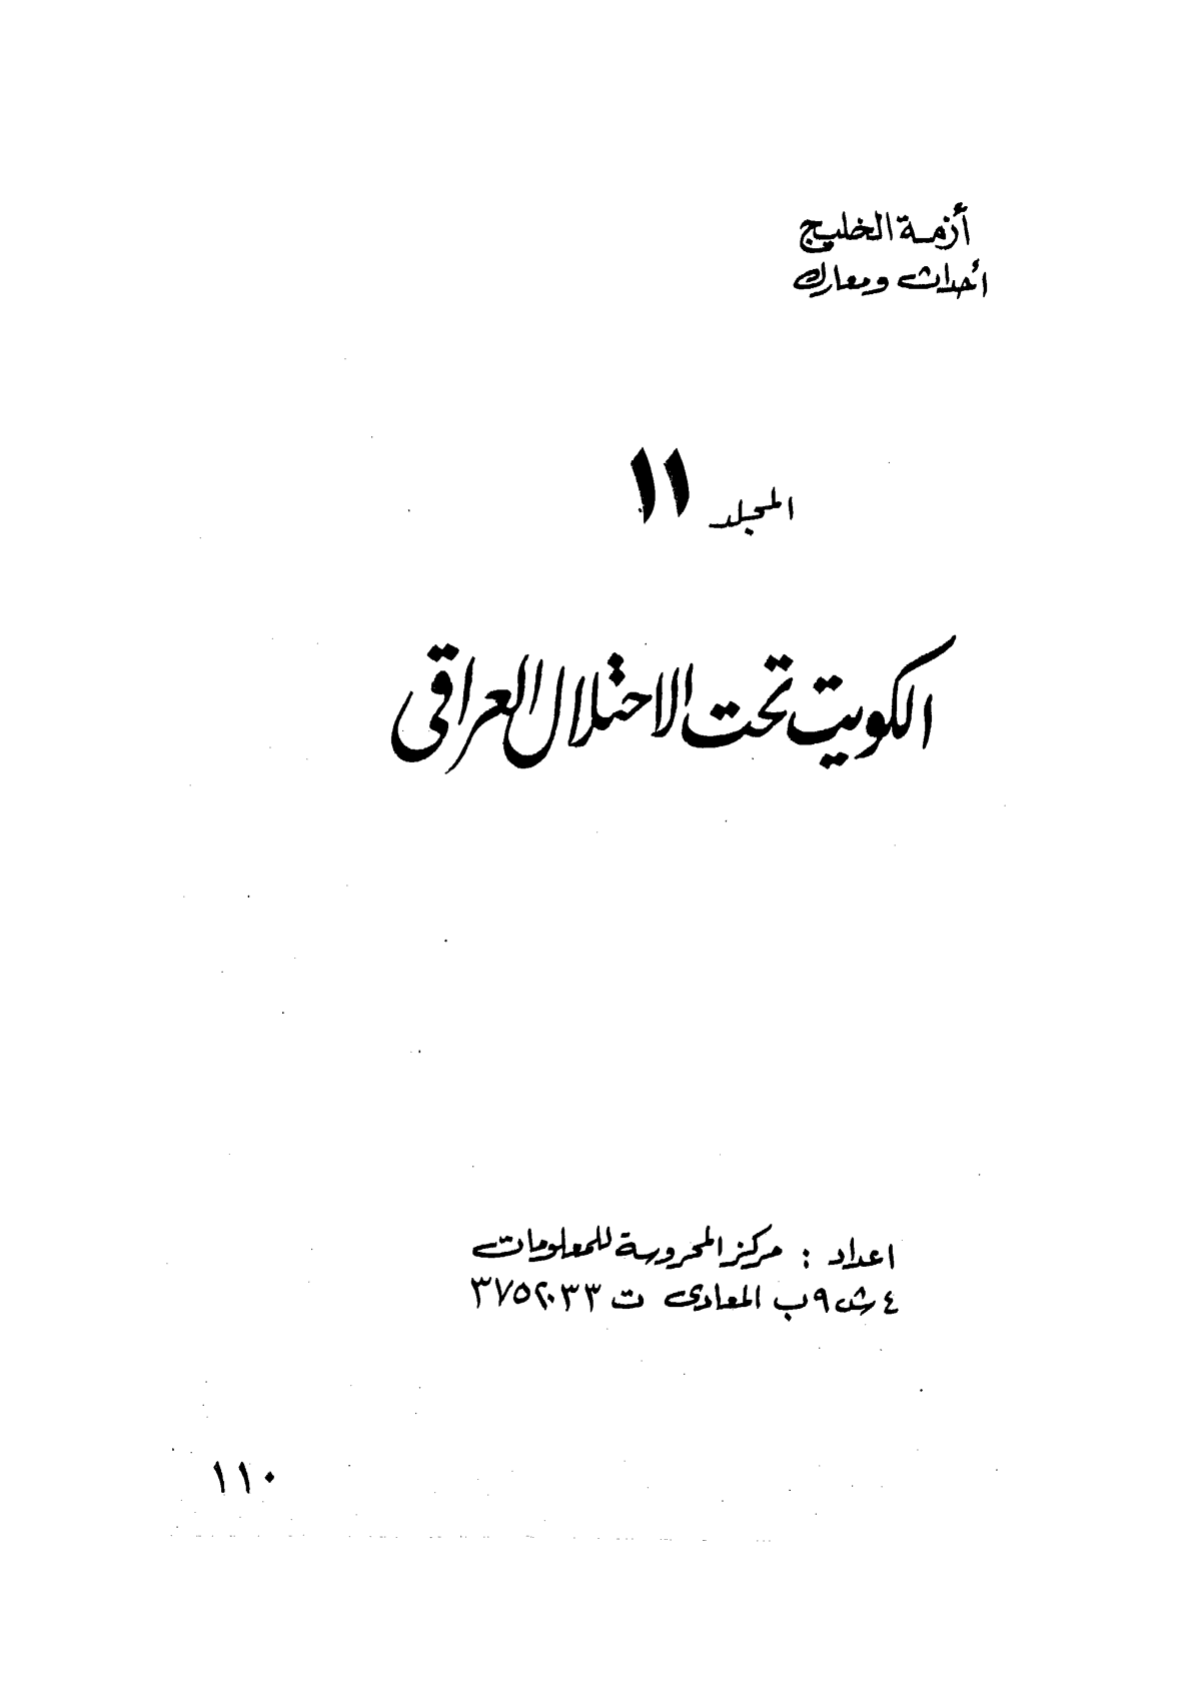 أزمة الخليج
أحداث ومعارك
المجلد ١١
الكويت تحت الاحتلال العراقى
اعداد : مركز المحروسة للمعلومات
٤ ش ٩ ب المعادى ت ٣٧٥٢٠٣٣
١١٠